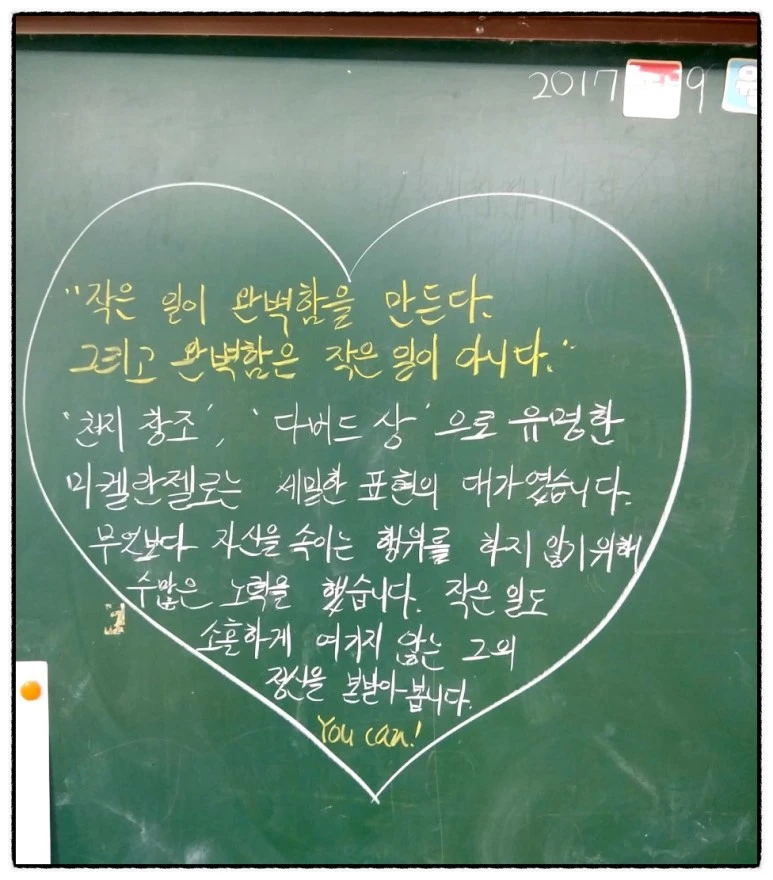 2017 9 월
"작은 일이 완벽함을 만든다.
그리고 완벽함은 작은 일이 아니다."
'천지 창조', '다비드 상'으로 유명한
미켈란젤로는 세밀한 표현의 대가였습니다.
무엇보다 자신을 속이는 행위를 하지 않기 위해
수많은 노력을 했습니다. 작은 일도
소홀하게 여기지 않는 그의
정신을 본받아 봅니다.
You can!